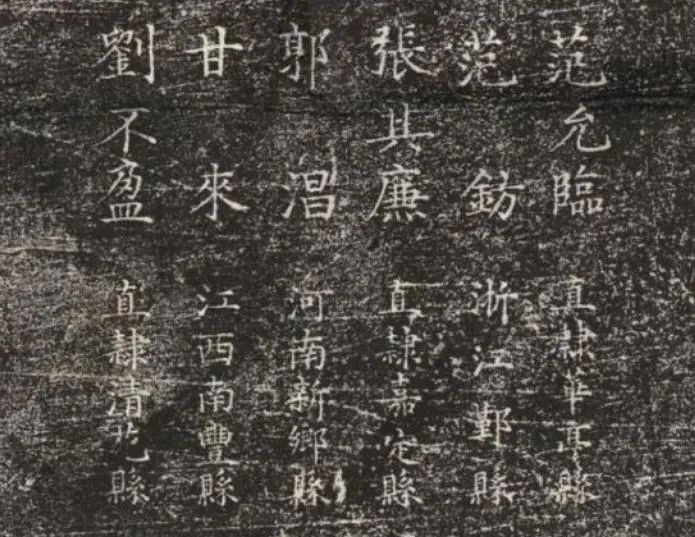 范允臨 直隸華亭縣
范鈁 浙江鄞縣
張其廉 直隸嘉定縣
郭淐 河南新鄉縣
甘來 江西南豐縣
劉不盈 直隸清苑縣